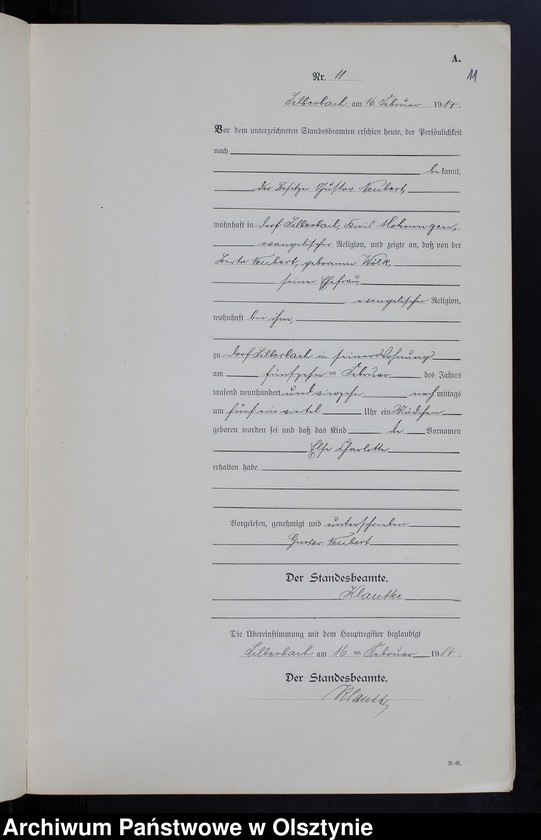 A.
11
Nr. 11
Silberbach am 16 Februar 1914.
Vor dem unterzeichneten Standesbeamten erschien heute, der Persönlichkeit
nach
bekannt,
der Besitzer Gustav Neubert,
wohnhaft in Dorf Silberbach, Kreis Mohrungen,
evangelischer Religion, und zeigte an, daß von der
Berta Neubert, geborenen Wölk,
seine Ehefrau,
evangelischer Religion,
wohnhaft bei ihm,
zu Dorf Silberbach in seiner Wohnung
am fünfzehn ten Februar des Jahres
tausend neunhundert und vierzehn nachmittags
um fünf ein viertel Uhr ein Mädchen
geboren worden sei und daß das Kind die Vornamen
Else Charlotte
erhalten habe.
Vorgelesen, genehmigt und unterschrieben
Gustav Neubert
Der Standesbeamte.
Klautke
Die Übereinstimmung mit dem Hauptregister beglaubigt
Silberbach am 16 ten Februar 1914.
Der Standesbeamte.
Klautke
R.-R.
Archiwum Państwowe w Olsztynie